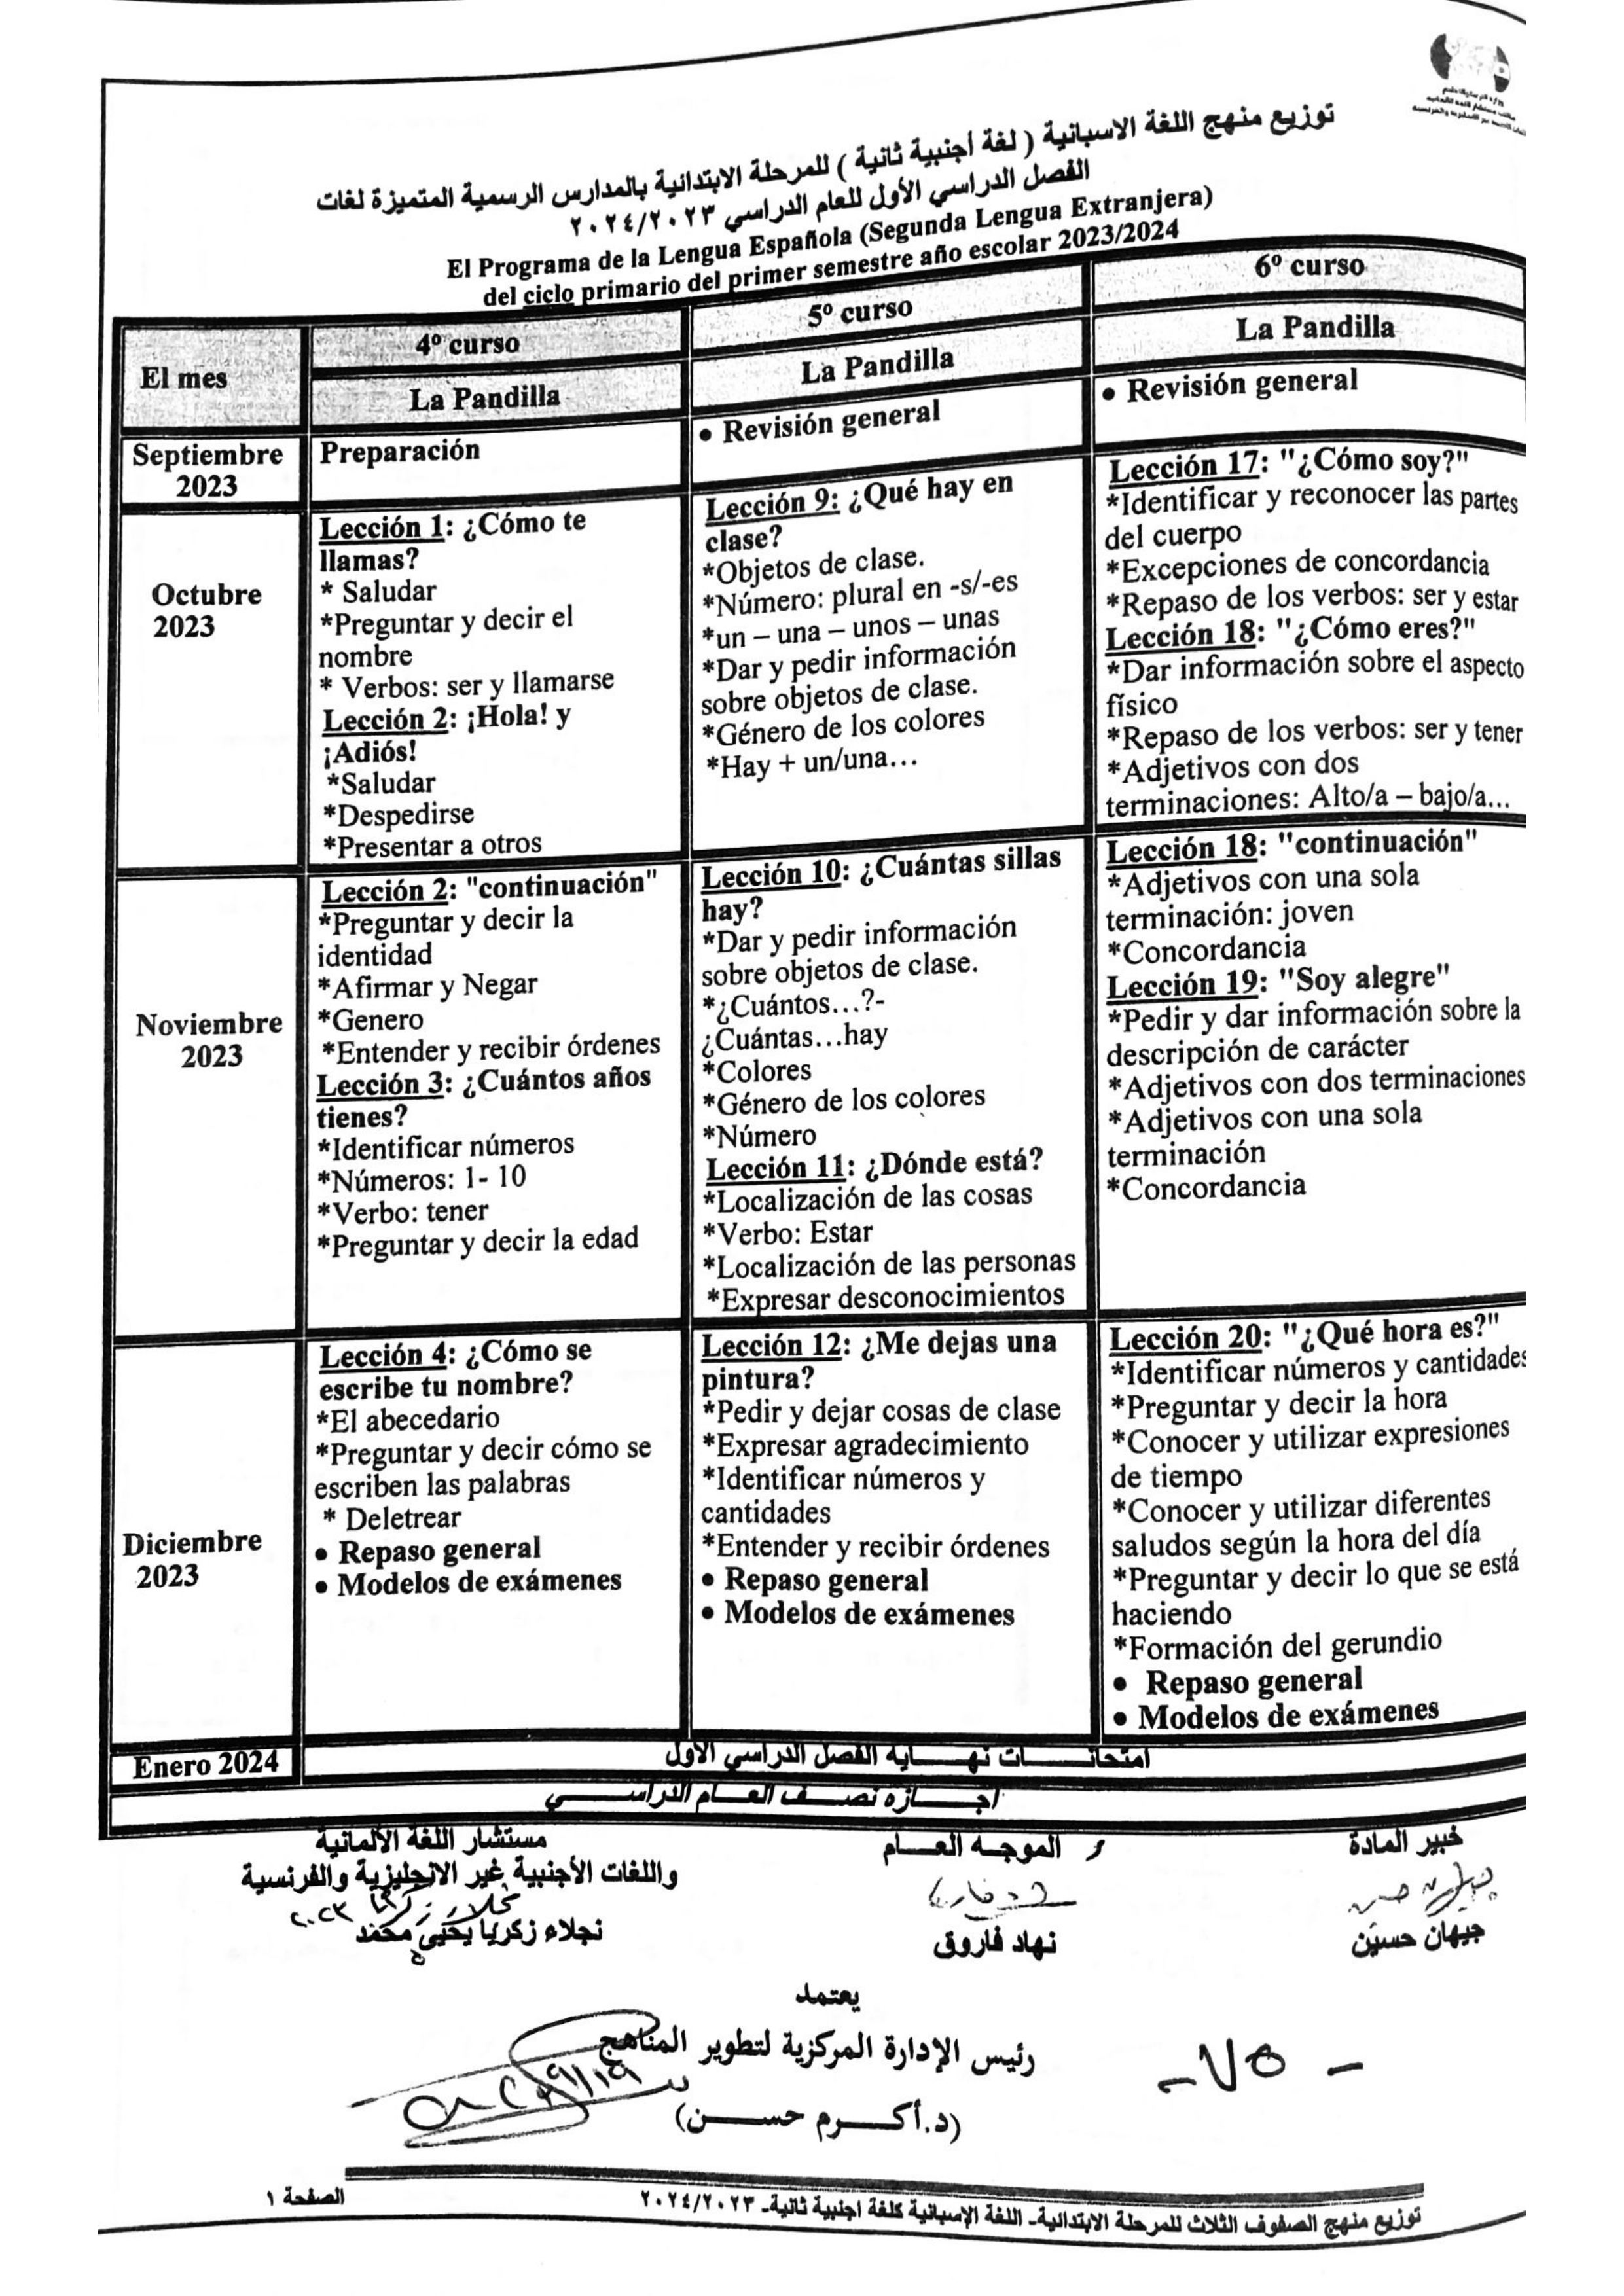 توزيع منهج اللغة الاسبانية ( لغة أجنبية ثانية ) للمرحلة الابتدائية بالمدارس الرسمية المتميزة لغات
الفصل الدراسي الأول للعام الدراسي ٢٠٢٤/٢٠٢٣
El Programa de la Lengua Española (Segunda Lengua Extranjera)
del ciclo primario del primer semestre año escolar 2023/2024
El mes
4º curso
5º curso
6º curso
La Pandilla
La Pandilla
La Pandilla
Septiembre
2023
Preparación
• Revisión general
• Revisión general
Octubre
2023
Lección 1: ¿Cómo te
llamas?
* Saludar
*Preguntar y decir el
nombre
* Verbos: ser y llamarse
Lección 2: ¡Hola! y
¡Adiós!
*Saludar
*Despedirse
*Presentar a otros
Lección 9: ¿Qué hay en
clase?
*Objetos de clase.
*Número: plural en -s/-es
*un – una – unos – unas
*Dar y pedir información
sobre objetos de clase.
*Género de los colores
*Hay + un/una…
Lección 17: "¿Cómo soy?"
*Identificar y reconocer las partes
del cuerpo
*Excepciones de concordancia
*Repaso de los verbos: ser y estar
Lección 18: "¿Cómo eres?"
*Dar información sobre el aspecto
físico
*Repaso de los verbos: ser y tener
*Adjetivos con dos
terminaciones: Alto/a – bajo/a…
Noviembre
2023
Lección 2: "continuación"
*Preguntar y decir la
identidad
*Afirmar y Negar
*Genero
*Entender y recibir órdenes
Lección 3: ¿Cuántos años
tienes?
*Identificar números
*Números: 1- 10
*Verbo: tener
*Preguntar y decir la edad
Lección 10: ¿Cuántas sillas
hay?
*Dar y pedir información
sobre objetos de clase.
*¿Cuántos…?-
¿Cuántas…hay
*Colores
*Género de los colores
*Número
Lección 11: ¿Dónde está?
*Localización de las cosas
*Verbo: Estar
*Localización de las personas
*Expresar desconocimientos
Lección 18: "continuación"
*Adjetivos con una sola
terminación: joven
*Concordancia
Lección 19: "Soy alegre"
*Pedir y dar información sobre la
descripción de carácter
*Adjetivos con dos terminaciones
*Adjetivos con una sola
terminación
*Concordancia
Diciembre
2023
Lección 4: ¿Cómo se
escribe tu nombre?
*El abecedario
*Preguntar y decir cómo se
escriben las palabras
* Deletrear
• Repaso general
• Modelos de exámenes
Lección 12: ¿Me dejas una
pintura?
*Pedir y dejar cosas de clase
*Expresar agradecimiento
*Identificar números y
cantidades
*Entender y recibir órdenes
• Repaso general
• Modelos de exámenes
Lección 20: "¿Qué hora es?"
*Identificar números y cantidades
*Preguntar y decir la hora
*Conocer y utilizar expresiones
de tiempo
*Conocer y utilizar diferentes
saludos según la hora del día
*Preguntar y decir lo que se está
haciendo
*Formación del gerundio
• Repaso general
• Modelos de exámenes
Enero 2024
امتحانــــــات نهـــــاية الفصل الدراسي الأول
اجـــــازة نصـــف العـــام الدراســـــي
خبير المادة
الموجـــه العــــام
مستشار اللغة الألمانية
واللغات الأجنبية غير الانجليزية والفرنسية
جيهان حسين
نهاد فاروق
نجلاء زكريا يحيى محمد
يعتمد
رئيس الإدارة المركزية لتطوير المناهج
(د.أكـــرم حســـــن)
- ٧٥ -
توزيع منهج الصفوف الثلاث للمرحلة الابتدائية- اللغة الإسبانية كلغة اجنبية ثانية- ٢٠٢٤/٢٠٢٣
الصفحة ١